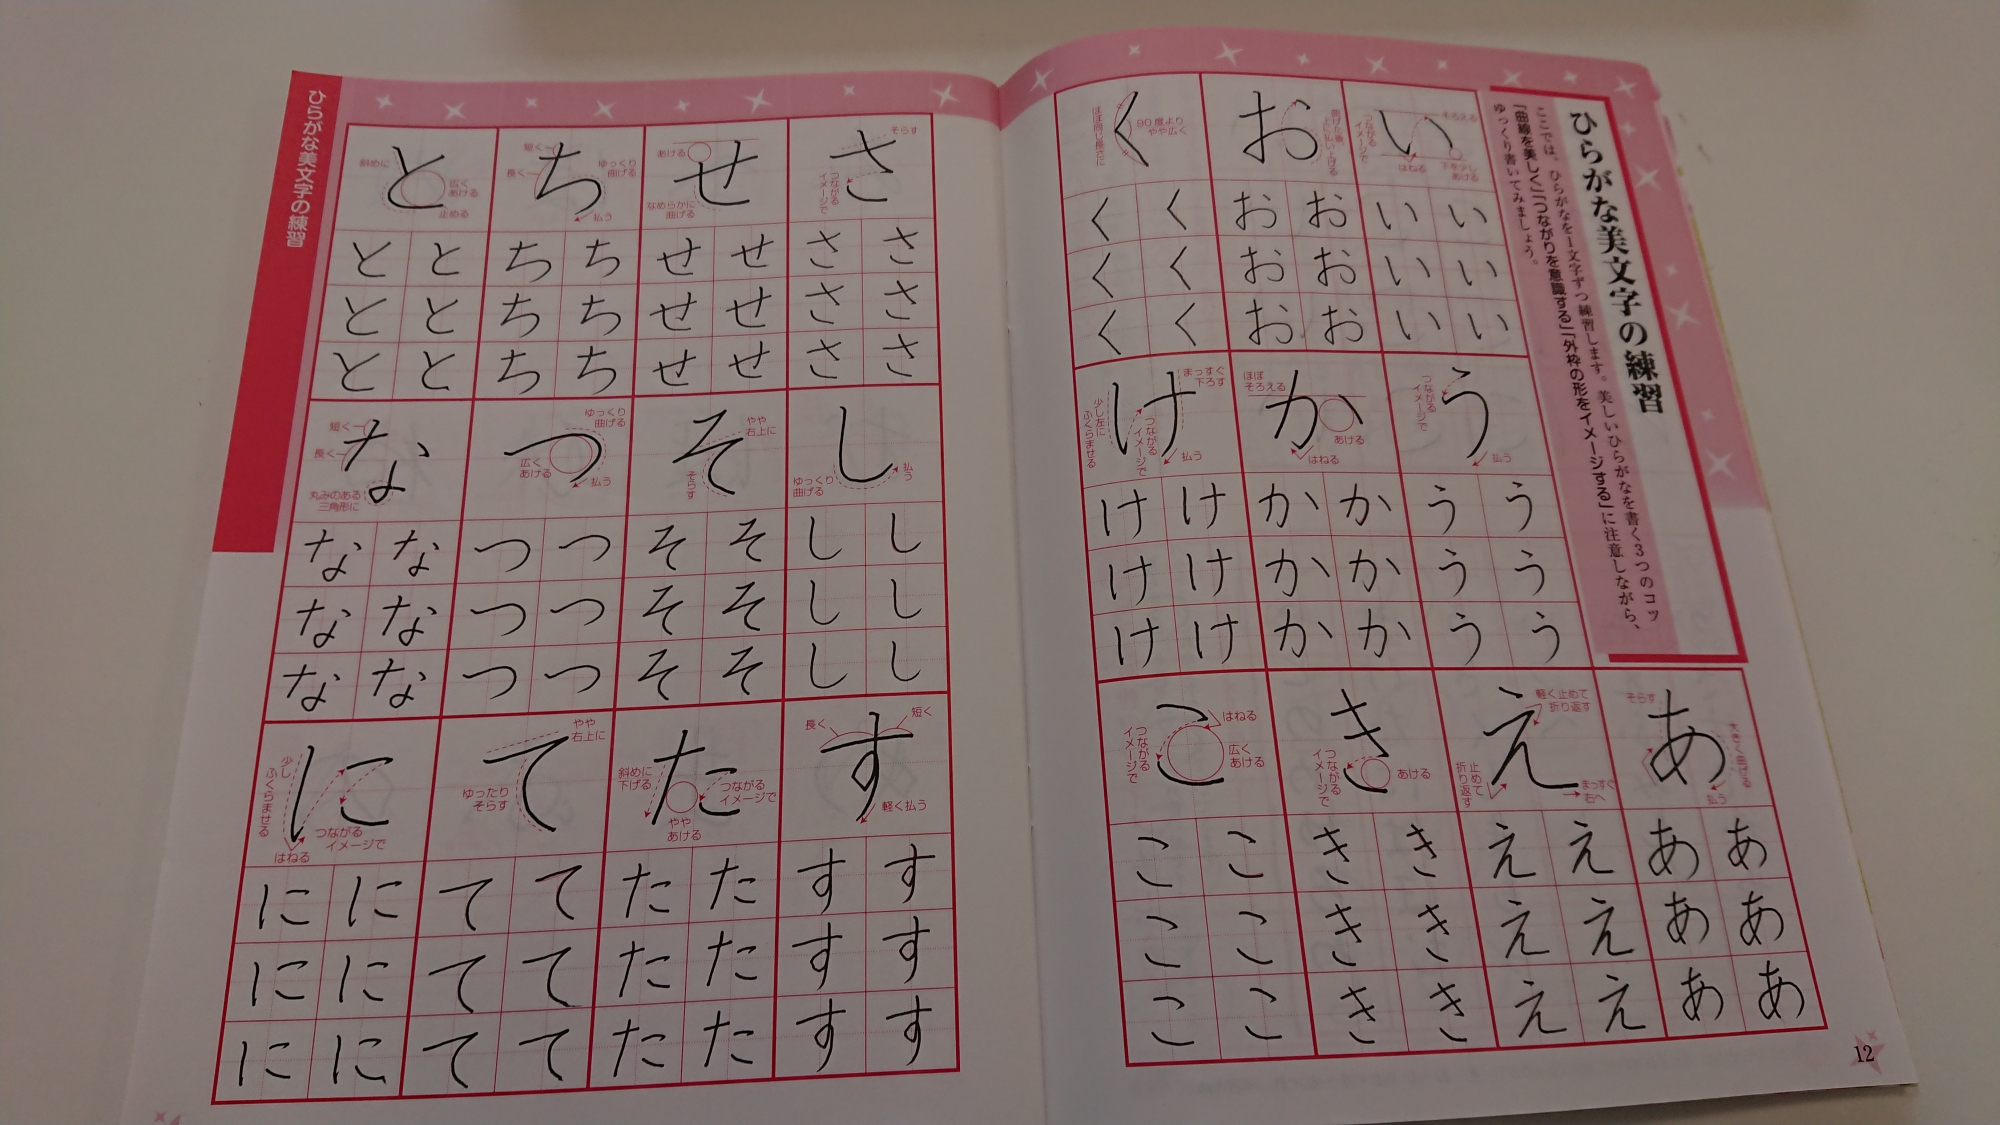 ひらがな美文字の練習
ここでは、ひらがなを1文字ずつ練習します。美しいひらがなを書く3つのコツ
「曲線を美しく」「つながりを意識する」「外枠の形をイメージする」に注意しながら、
ゆっくり書いてみましょう。
い
そろえる
つながる
イメージで
はねる
下を少し
あける
い い
い い
い い
う
つながる
イメージで
払う
う う
う う
う う
あ
そらす
大きく曲げる
払う
あ あ
あ あ
あ あ
え
軽く止めて
折り返す
止めて
折り返す
まっすぐ
右へ
え え
え え
え え
お
曲げた後、
上に払い上げる
お お
お お
お お
か
ほぼ
そろえる
あける
はねる
か か
か か
か か
き
つながる
イメージで
あける
き き
き き
き き
く
90度より
やや広く
ほぼ同じ長さに
く く
く く
く く
け
まっすぐ
下ろす
少し左に
ふくらませる
つながる
イメージで
払う
け け
け け
け け
こ
はねる
つながる
イメージで
広く
あける
こ こ
こ こ
こ こ
12
ひらがな美文字の練習
さ
そらす
つながる
イメージで
さ さ
さ さ
さ さ
し
ゆっくり
曲げる
払う
し し
し し
し し
す
長く
短く
軽く払う
す す
す す
す す
せ
あける
なめらかに
曲げる
せ せ
せ せ
せ せ
そ
やや
右上に
そらす
そ そ
そ そ
そ そ
た
斜めに
下げる
つながる
イメージで
やや
あける
た た
た た
た た
ち
短く
長く
ゆっくり
曲げる
払う
ち ち
ち ち
ち ち
つ
ゆっくり
曲げる
広く
あける
払う
つ つ
つ つ
つ つ
て
やや
右上に
ゆったり
そらす
て て
て て
て て
と
斜めに
広く
あける
止める
と と
と と
と と
な
短く
長く
丸みのある
三角形に
な な
な な
な な
に
少し
ふくらませる
つながる
イメージで
はねる
に に
に に
に に